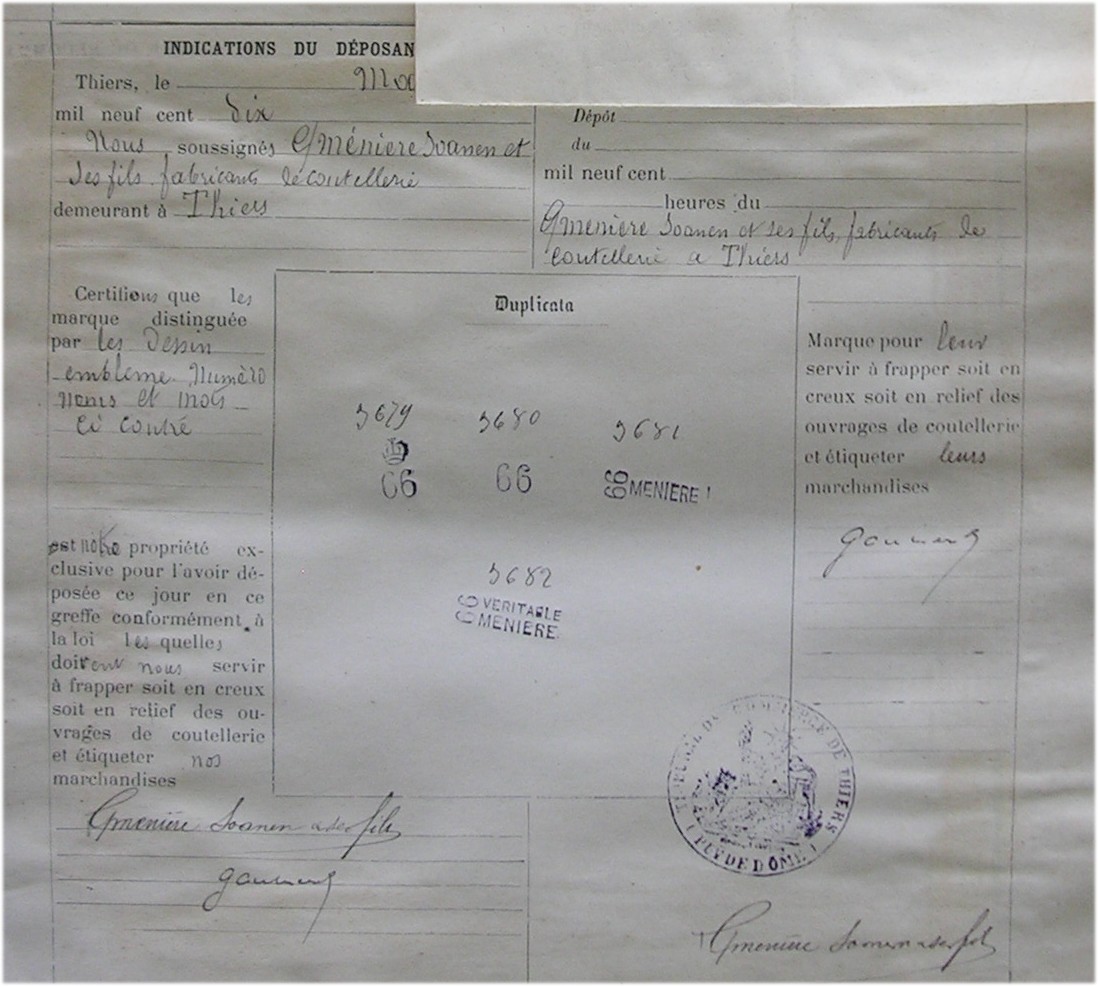 INDICATIONS DU DÉPOSAN
Thiers, le
mil neuf cent dix
Nous soussignés Gménière Soanen et
ses fils fabricants de coutellerie
demeurant à Thiers
Dépôt
du
mil neuf cent
heures du
Gménière Soanen et ses fils, fabricants de
coutellerie a Thiers
Certifions que les
marque distinguée
par les Dessin
emblème Numéro
noms et mots
ci contre
est nôtre propriété ex-
clusive pour l'avoir dé-
posée ce jour en ce
greffe conformément à
la loi les quelles
doivent nous servir
à frapper soit en creux
soit en relief des ou-
vrages de coutellerie
et étiqueter nos
marchandises
Duplicata
5679 5680 5681
66 66 66 MENIERE !
5682
66 VERITABLE
MENIERE
Marque pour leur
servir à frapper soit en
creux soit en relief des
ouvrages de coutellerie
et étiqueter leurs
marchandises
TRIBUNAL DE COMMERCE DE THIERS
( PUY DE DÔME )
Gménière Soanen & ses fils
Gménière Soanen & ses fils